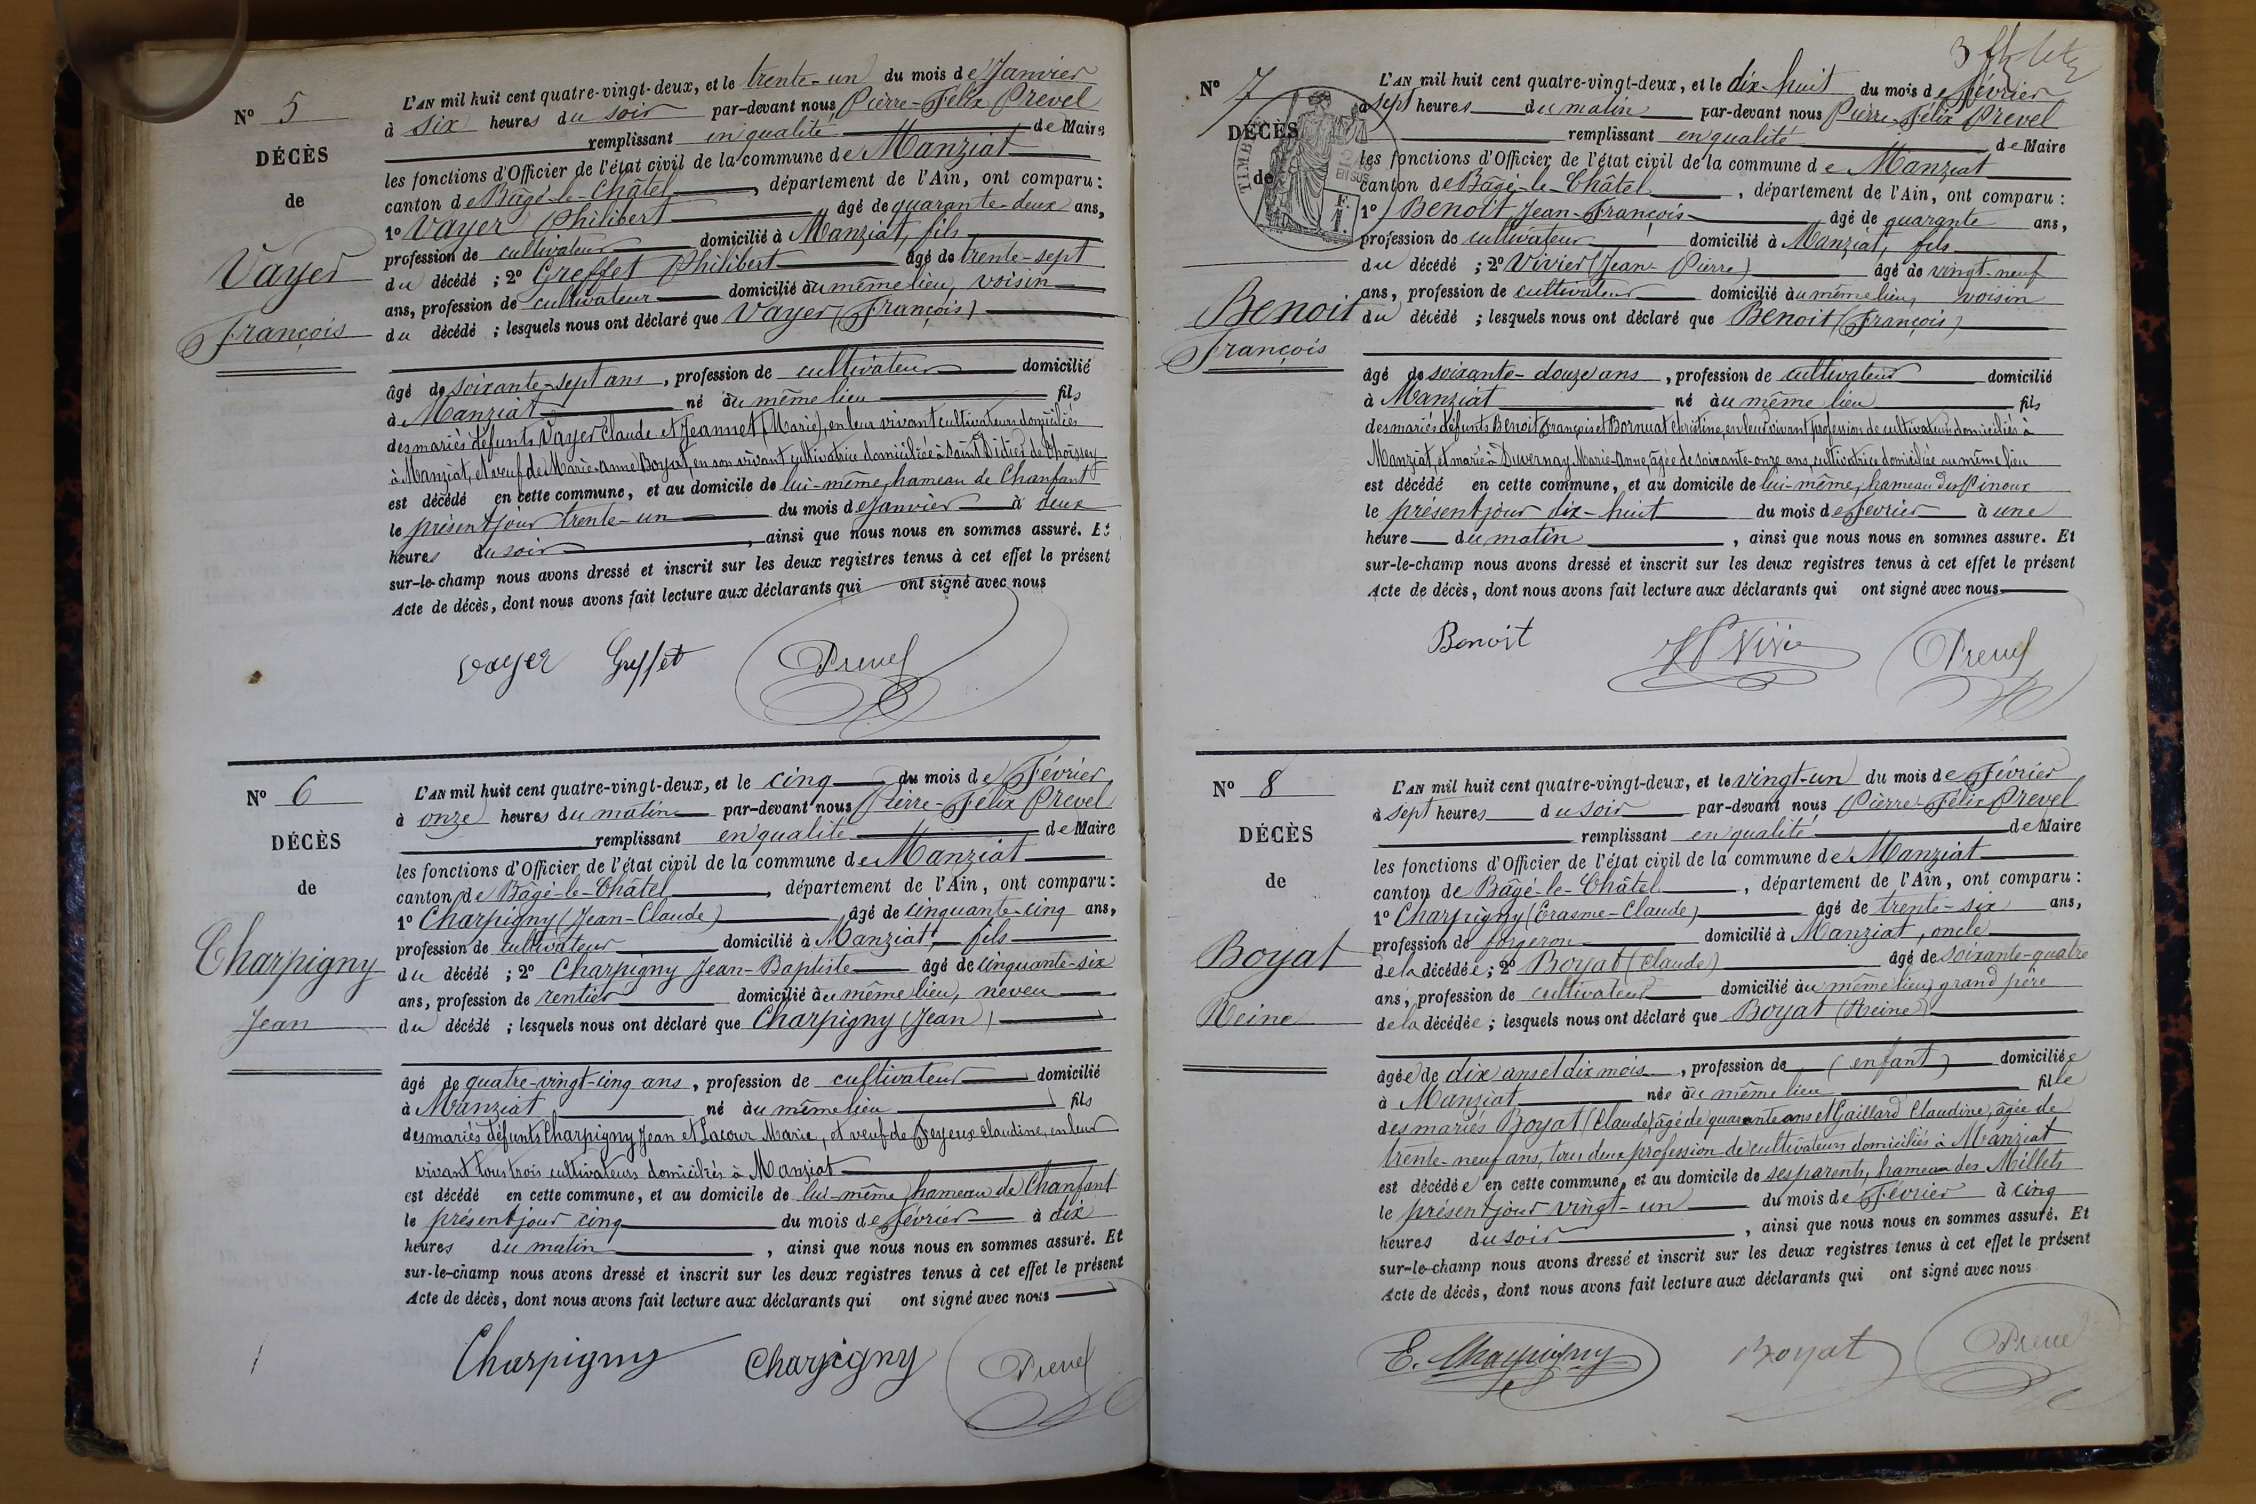 N° 5
DÉCÈS
de
Vayer
François
L'AN mil huit cent quatre-vingt-deux, et le trente-un du mois de Janvier
à six heures du soir par-devant nous Pierre-Félix Prevel
remplissant en qualité de Maire
les fonctions d'Officier de l'état civil de la commune de Manziat
canton de Bâgé-le-Châtel, département de l'Ain, ont comparu :
1° Vayer Philibert âgé de quarante-deux ans,
profession de cultivateur domicilié à Manziat, fils
du décédé ; 2° Greffet Philibert âgé de trente-sept
ans, profession de cultivateur domicilié au même lieu, voisin
du décédé ; lesquels nous ont déclaré que Vayer (François)
âgé de soixante-sept ans, profession de cultivateur domicilié
à Manziat né au même lieu fils
des mariés défunts Vayer Claude et Jeannet (Marie), en leur vivant cultivateurs domiciliés
à Manziat, et veuf de Marie-Anne Boyat, en son vivant cultivatrice domiciliée à Saint Didier de Choissey
est décédé en cette commune, et au domicile de lui-même, hameau de Chanfant
le présent jour trente-un du mois de Janvier à deux
heures du soir, ainsi que nous nous en sommes assuré. Et
sur-le-champ nous avons dressé et inscrit sur les deux registres tenus à cet effet le présent
Acte de décès, dont nous avons fait lecture aux déclarants qui ont signé avec nous
Vayer Greffet Prevel
N° 6
DÉCÈS
de
Charpigny
Jean
L'AN mil huit cent quatre-vingt-deux, et le cinq du mois de Février
à onze heures du matin par-devant nous Pierre-Félix Prevel
remplissant en qualité de Maire
les fonctions d'Officier de l'état civil de la commune de Manziat
canton de Bâgé-le-Châtel, département de l'Ain, ont comparu :
1° Charpigny (Jean-Claude) âgé de cinquante-cinq ans,
profession de cultivateur domicilié à Manziat, fils
du décédé ; 2° Charpigny Jean-Baptiste âgé de cinquante-six
ans, profession de rentier domicilié au même lieu, neveu
du décédé ; lesquels nous ont déclaré que Charpigny (Jean)
âgé de quatre-vingt-cinq ans, profession de cultivateur domicilié
à Manziat né au même lieu fils
des mariés défunts Charpigny Jean et Lacour Marie, et veuf de Feyeux Claudine, en leur
vivant tous trois cultivateurs domiciliés à Manziat
est décédé en cette commune, et au domicile de lui-même, hameau de Chanfant
le présent jour cinq du mois de Février à dix
heures du matin, ainsi que nous nous en sommes assuré. Et
sur-le-champ nous avons dressé et inscrit sur les deux registres tenus à cet effet le présent
Acte de décès, dont nous avons fait lecture aux déclarants qui ont signé avec nous
Charpigny Charpigny Prevel
3
N° 7
DÉCÈS
de
Benoit
François
L'AN mil huit cent quatre-vingt-deux, et le dix-huit du mois de Février
à sept heures du matin par-devant nous Pierre-Félix Prevel
remplissant en qualité de Maire
les fonctions d'Officier de l'état civil de la commune de Manziat
canton de Bâgé-le-Châtel, département de l'Ain, ont comparu :
1° Benoit Jean-François âgé de quarante ans,
profession de cultivateur domicilié à Manziat, fils
du décédé ; 2° Vivier (Jean-Pierre) âgé de vingt-neuf
ans, profession de cultivateur domicilié au même lieu, voisin
du décédé ; lesquels nous ont déclaré que Benoit (François)
âgé de soixante-douze ans, profession de cultivateur domicilié
à Manziat né au même lieu fils
des mariés défunts Benoit François et Bornuat Christine, en leur vivant profession de cultivateurs domiciliés à
Manziat, et marié à Duvernay Marie-Anne, âgée de soixante-onze ans, cultivatrice domiciliée au même lieu
est décédé en cette commune, et au domicile de lui-même, hameau des Pinoux
le présent jour dix-huit du mois de Février à une
heure du matin, ainsi que nous nous en sommes assuré. Et
sur-le-champ nous avons dressé et inscrit sur les deux registres tenus à cet effet le présent
Acte de décès, dont nous avons fait lecture aux déclarants qui ont signé avec nous
Benoit JP Vivier Prevel
N° 8
DÉCÈS
de
Boyat
Reine
L'AN mil huit cent quatre-vingt-deux, et le vingt-un du mois de Février
à sept heures du soir par-devant nous Pierre-Félix Prevel
remplissant en qualité de Maire
les fonctions d'Officier de l'état civil de la commune de Manziat
canton de Bâgé-le-Châtel, département de l'Ain, ont comparu :
1° Charpigny (Erasme-Claude) âgé de trente-six ans,
profession de forgeron domicilié à Manziat, oncle
de la décédée ; 2° Boyat (Claude) âgé de soixante-quatre
ans, profession de cultivateur domicilié au même lieu, grand père
de la décédée ; lesquels nous ont déclaré que Boyat (Reine)
âgée de dix ans et dix mois, profession de (enfant) domiciliée
à Manziat née au même lieu fille
des mariés Boyat (Claude) âgé de quarante ans et Gaillard Claudine, âgée de
trente-neuf ans, tous deux profession de cultivateurs domiciliés à Manziat
est décédée en cette commune, et au domicile de ses parents, hameau des Millets
le présent jour vingt-un du mois de Février à cinq
heures du soir, ainsi que nous nous en sommes assuré. Et
sur-le-champ nous avons dressé et inscrit sur les deux registres tenus à cet effet le présent
Acte de décès, dont nous avons fait lecture aux déclarants qui ont signé avec nous
E. Charpigny Boyat Prevel